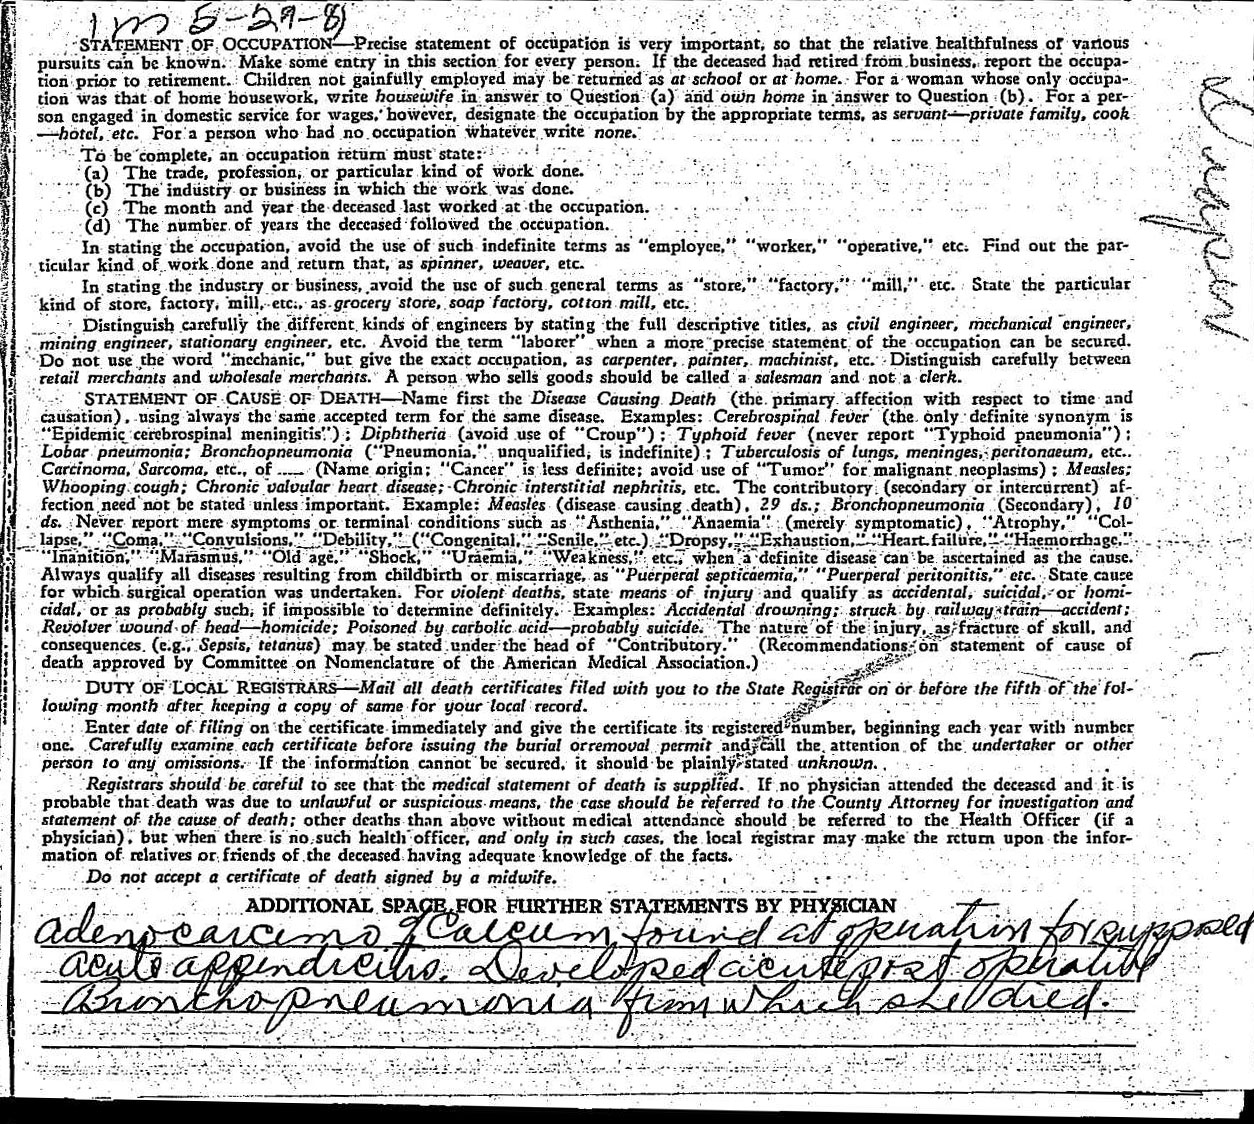 1m 5-29-8
STATEMENT OF OCCUPATION—Precise statement of occupation is very important, so that the relative healthfulness of various
pursuits can be known. Make some entry in this section for every person. If the deceased had retired from business, report the occupa-
tion prior to retirement. Children not gainfully employed may be returned as at school or at home. For a woman whose only occupa-
tion was that of home housework, write housewife in answer to Question (a) and own home in answer to Question (b). For a per-
son engaged in domestic service for wages, however, designate the occupation by the appropriate terms, as servant—private family, cook
—hotel, etc. For a person who had no occupation whatever write none.
To be complete, an occupation return must state:
(a) The trade, profession, or particular kind of work done.
(b) The industry or business in which the work was done.
(c) The month and year the deceased last worked at the occupation.
(d) The number of years the deceased followed the occupation.
In stating the occupation, avoid the use of such indefinite terms as "employee," "worker," "operative," etc. Find out the par-
ticular kind of work done and return that, as spinner, weaver, etc.
In stating the industry or business, avoid the use of such general terms as "store," "factory," "mill," etc. State the particular
kind of store, factory, mill, etc., as grocery store, soap factory, cotton mill, etc.
Distinguish carefully the different kinds of engineers by stating the full descriptive titles, as civil engineer, mechanical engineer,
mining engineer, stationary engineer, etc. Avoid the term "laborer" when a more precise statement of the occupation can be secured.
Do not use the word "mechanic," but give the exact occupation, as carpenter, painter, machinist, etc. Distinguish carefully between
retail merchants and wholesale merchants. A person who sells goods should be called a salesman and not a clerk.
STATEMENT OF CAUSE OF DEATH—Name first the Disease Causing Death (the primary affection with respect to time and
causation), using always the same accepted term for the same disease. Examples: Cerebrospinal fever (the only definite synonym is
"Epidemic cerebrospinal meningitis"); Diphtheria (avoid use of "Croup"); Typhoid fever (never report "Typhoid pneumonia");
Lobar pneumonia; Bronchopneumonia ("Pneumonia," unqualified, is indefinite); Tuberculosis of lungs, meninges, peritonaeum, etc..
Carcinoma, Sarcoma, etc., of ...... (Name origin; "Cancer" is less definite; avoid use of "Tumor" for malignant neoplasms); Measles;
Whooping cough; Chronic valvular heart disease; Chronic interstitial nephritis, etc. The contributory (secondary or intercurrent) af-
fection need not be stated unless important. Example: Measles (disease causing death), 29 ds.; Bronchopneumonia (Secondary), 10
ds. Never report mere symptoms or terminal conditions such as "Asthenia," "Anaemia" (merely symptomatic), "Atrophy," "Col-
lapse," "Coma," "Convulsions," "Debility," ("Congenital," "Senile," etc.) "Dropsy," "Exhaustion," "Heart failure," "Haemorrhage,"
"Inanition," "Marasmus," "Old age," "Shock," "Uraemia," "Weakness," etc., when a definite disease can be ascertained as the cause.
Always qualify all diseases resulting from childbirth or miscarriage, as "Puerperal septicaemia," "Puerperal peritonitis," etc. State cause
for which surgical operation was undertaken. For violent deaths, state means of injury and qualify as accidental, suicidal, or homi-
cidal, or as probably such, if impossible to determine definitely. Examples: Accidental drowning; struck by railway train—accident;
Revolver wound of head—homicide; Poisoned by carbolic acid—probably suicide. The nature of the injury, as fracture of skull, and
consequences (e.g., Sepsis, tetanus) may be stated under the head of "Contributory." (Recommendations on statement of cause of
death approved by Committee on Nomenclature of the American Medical Association.)
DUTY OF LOCAL REGISTRARS—Mail all death certificates filed with you to the State Registrar on or before the fifth of the fol-
lowing month after keeping a copy of same for your local record.
Enter date of filing on the certificate immediately and give the certificate its registered number, beginning each year with number
one. Carefully examine each certificate before issuing the burial orremoval permit and call the attention of the undertaker or other
person to any omissions. If the information cannot be secured, it should be plainly stated unknown.
Registrars should be careful to see that the medical statement of death is supplied. If no physician attended the deceased and it is
probable that death was due to unlawful or suspicious means, the case should be referred to the County Attorney for investigation and
statement of the cause of death; other deaths than above without medical attendance should be referred to the Health Officer (if a
physician), but when there is no such health officer, and only in such cases, the local registrar may make the return upon the infor-
mation of relatives or friends of the deceased having adequate knowledge of the facts.
Do not accept a certificate of death signed by a midwife.
ADDITIONAL SPACE FOR FURTHER STATEMENTS BY PHYSICIAN
Adenocarcimo of Caecum found at operation for supposed
acute appendicitis. Developed acute post operative
Bronchopneumonia from which she died.